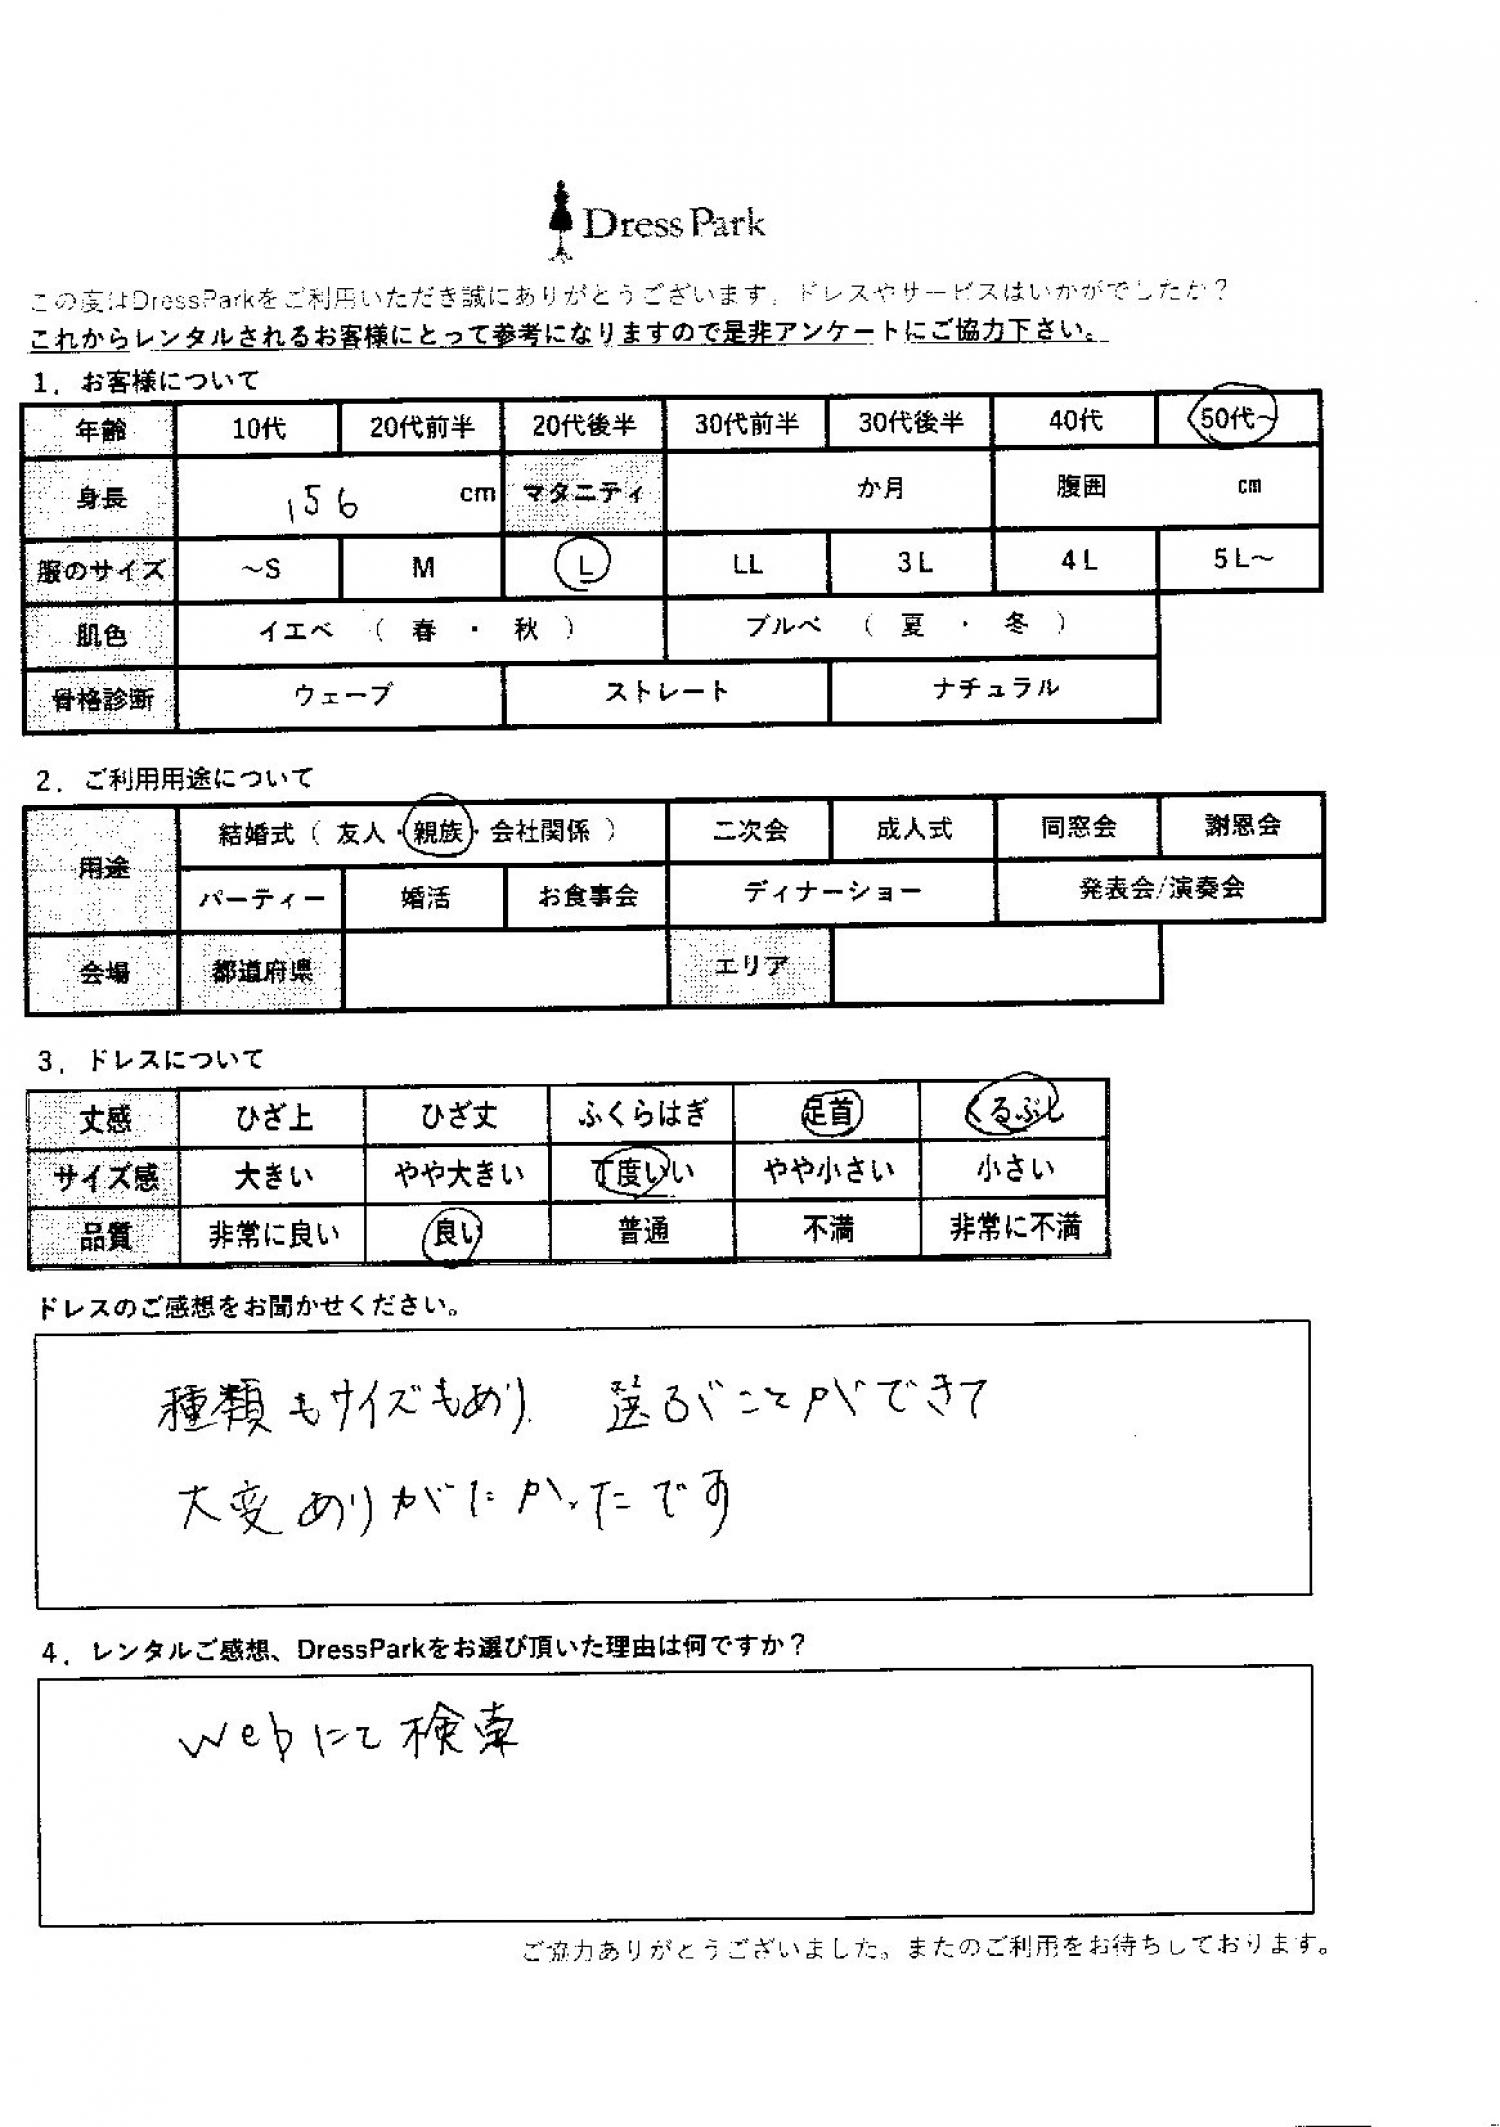 Dress Park
この度はDressParkをご利用いただき誠にありがとうございます。ドレスやサービスはいかがでしたか？
これからレンタルされるお客様にとって参考になりますので是非アンケートにご協力下さい。
1. お客様について
年齢 10代 20代前半 20代後半 30代前半 30代後半 40代 50代～
身長 156 cm マタニティ か月 腹囲 cm
服のサイズ ～S M L LL 3L 4L 5L～
肌色 イエベ （ 春 ・ 秋 ） ブルベ （ 夏 ・ 冬 ）
骨格診断 ウェーブ ストレート ナチュラル
2. ご利用用途について
用途 結婚式（ 友人・親族・会社関係 ） 二次会 成人式 同窓会 謝恩会
パーティー 婚活 お食事会 ディナーショー 発表会/演奏会
会場 都道府県 エリア
3. ドレスについて
丈感 ひざ上 ひざ丈 ふくらはぎ 足首 くるぶし
サイズ感 大きい やや大きい 丁度いい やや小さい 小さい
品質 非常に良い 良い 普通 不満 非常に不満
ドレスのご感想をお聞かせください。
種類もサイズもあり 選ぶことができて
大変ありがたかったです
4. レンタルご感想、DressParkをお選び頂いた理由は何ですか？
webにて検索
ご協力ありがとうございました。またのご利用をお待ちしております。